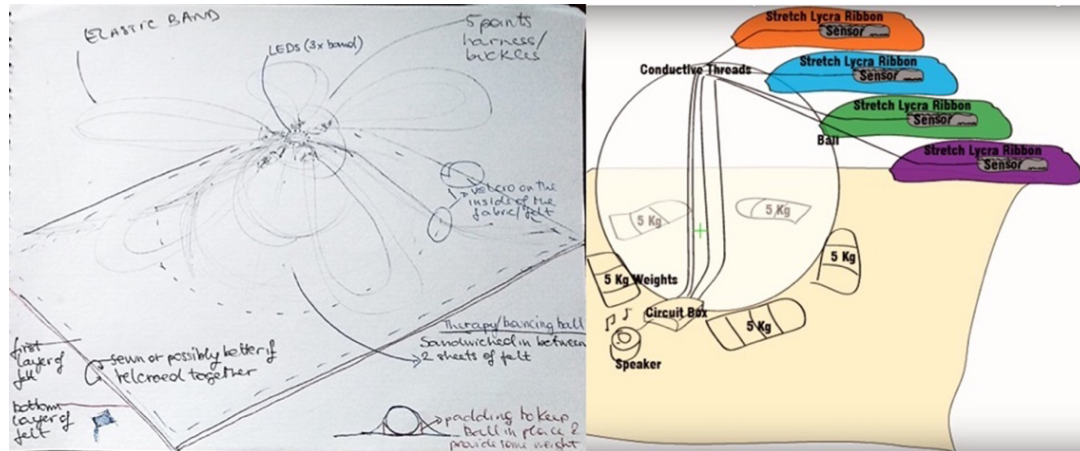 ELASTIC BAND
LEDs (3x band)
5 points
harness/
buckles
velcro on the
inside of the
fabric/felt
Therapy/bouncing ball
Sandwiched in between
2 sheets of felt
first
layer of
felt
sewn or possibly better if
velcroed together
bottom
layer of
felt
padding to keep
Ball in place &
provide some weight
Stretch Lycra Ribbon
Sensor
Conductive Threads
Stretch Lycra Ribbon
Sensor
Stretch Lycra Ribbon
Sensor
Ball
Stretch Lycra Ribbon
Sensor
5 Kg
5 Kg
5 Kg
5 Kg Weights
Circuit Box
5 Kg
Speaker